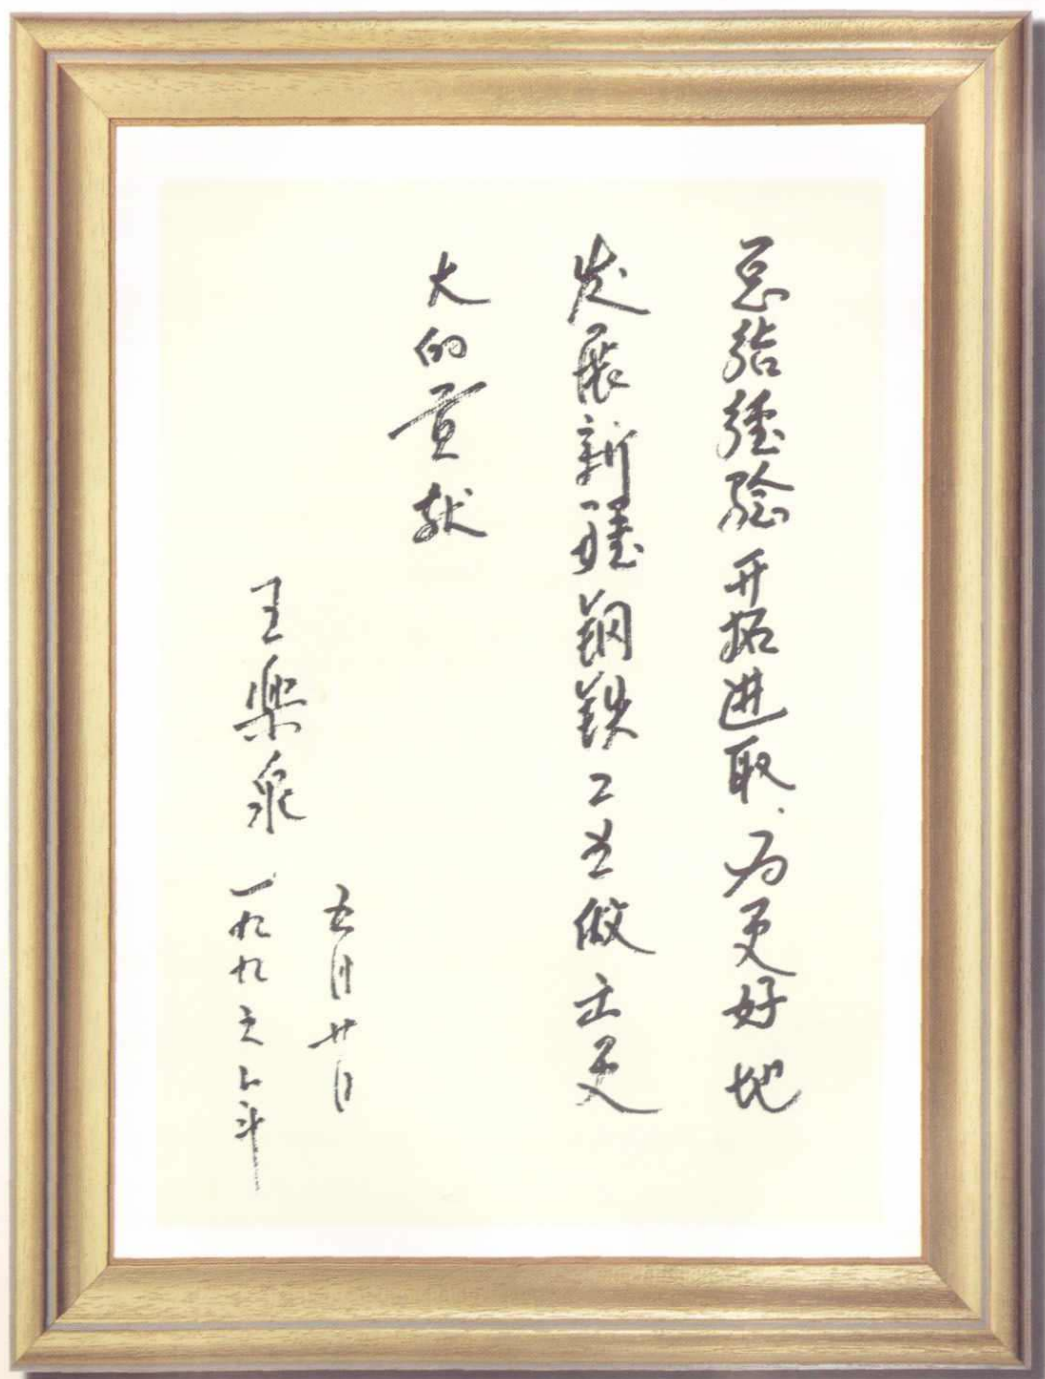 总结经验开拓进取.为更好地
发展新疆钢铁工业做出更
大的贡献
王樂泉 一九九六年
五月廿日